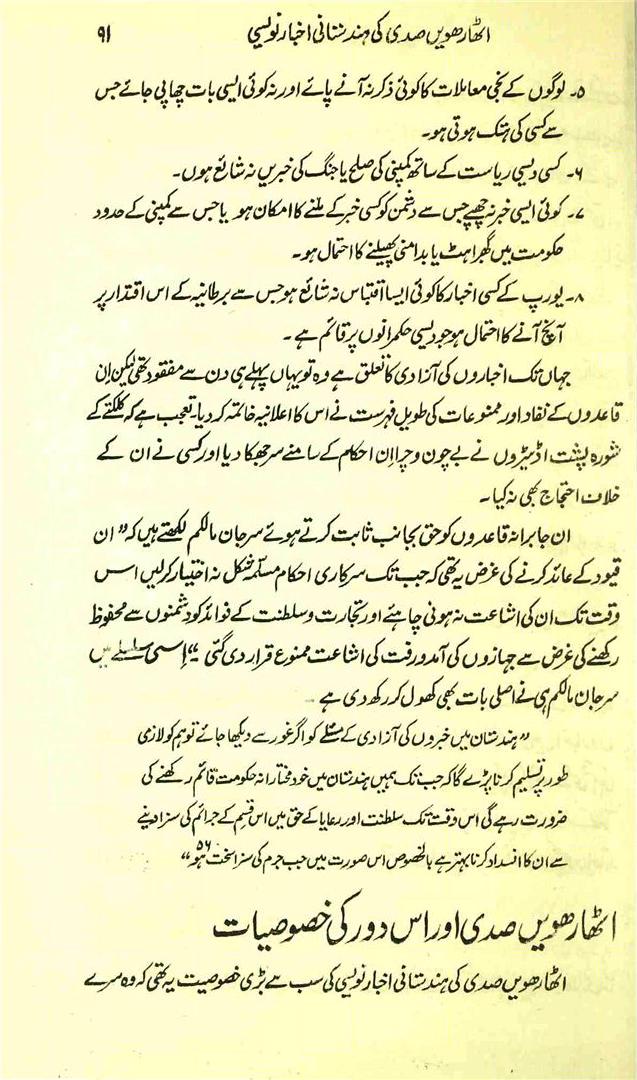 اٹھارھویں صدی کی ہندستانی اخبار نویسی ۹۱
۵۔ لوگوں کے نجی معاملات کا کوئی ذکر نہ آنے پائے اور نہ کوئی ایسی بات چھاپی جائے جس
سے کسی کی ہتک ہوتی ہو۔
۶۔ کسی دیسی ریاست کے ساتھ کمپنی کی صلح یا جنگ کی خبریں نہ شائع ہوں۔
۷۔ کوئی ایسی خبر نہ چھپے جس سے دشمن کو کسی خبر کے ملنے کا امکان ہو یا جس سے کمپنی کے حدود
حکومت میں گھبراہٹ یا بدامنی پھیلنے کا احتمال ہو۔
۸۔ یورپ کے کسی اخبار کا کوئی ایسا اقتباس نہ شائع ہو جس سے برطانیہ کے اس اقتدار پر
آنچ آنے کا احتمال ہو جو دیسی حکمرانوں پر قائم ہے۔
جہاں تک اخباروں کی آزادی کا تعلق ہے وہ تو یہاں پہلے ہی دن سے مفقود تھی لیکن اِن
قاعدوں کے نفاد اور ممنوعات کی طویل فہرست نے اس کا اعلانیہ خاتمہ کر دیا۔ تعجب ہے کہ کلکتے کے
شورہ پشت اڈیٹروں نے بے چون و چرا اِن احکام کے سامنے سر جھکا دیا اور کسی نے ان کے
خلاف احتجاج بھی نہ کیا۔
ان جابرانہ قاعدوں کو حق بجانب ثابت کرتے ہوئے سر جان مالکم لکھتے ہیں کہ "ان
قیود کے عائد کرنے کی غرض یہ تھی کہ جب تک سرکاری احکام مسلّمہ شکل نہ اختیار کر لیں اس
وقت تک ان کی اشاعت نہ ہونی چاہئے اور تجارت و سلطنت کے فوائد کو دشمنوں سے محفوظ
رکھنے کی غرض سے جہازوں کی آمد و رفت کی اشاعت ممنوع قرار دی گئی۔" اِسی سلسلے میں
سر جان مالکم ہی نے اصلی بات بھی کھول کر رکھ دی ہے۔
"ہندستان میں خبروں کی آزادی کے مسئلے کو اگر غور سے دیکھا جائے تو ہم کو لازمی
طور پر تسلیم کرنا پڑے گا کہ جب تک ہمیں ہندستان میں خود مختارانہ حکومت قائم رکھنے کی
ضرورت رہے گی اس وقت تک سلطنت اور رعایا کے حق میں اس قسم کے جرائم کی سزا دینے
سے ان کا انسداد کرنا بہتر ہے بالخصوص اس صورت میں جب جرم کی سزا سخت ہو۵۶"
اٹھارھویں صدی اور اس دور کی خصوصیات
اٹھارھویں صدی کی ہندستانی اخبار نویسی کی سب سے بڑی خصوصیت یہ تھی کہ وہ سرے